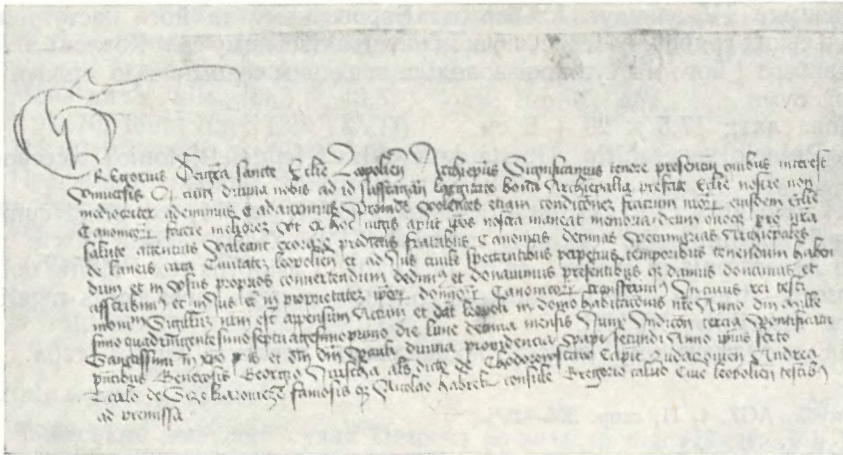 GREgorius dei gratia sancte Ecclie Leopolien Archiepus Significamus tenore presencium quibus interest
universis Quomodo cum divina nobis ad id suffragante largitate bona Archiepalia prefate Ecclie nostre non
mediocriter ademimus et adauximus Proinde volentes etiam condiciones fratrum nrorum eiusdem Ecclie
Canonicorum facere meliores Vt ex hoc iugis apud ipsos nostra maneat memoria deum orare pro nra
salute attencius valeant prefatis fratribus Canonicis decimas pecuniarias Archiepales
de laneis circa Civitatem leopolien et ad ius civile spectantibus perpetuis temporibus tenendum haben
dum et in vsus proprios convertendum dedimus et donavimus presentibus damus donamus et
asscribimus et in ius et in proprietatem Canonicorum transferimus In cuius rei testi
monium Sigillum nrum est appensum Actum et dat leopoli in domo habitacionis nre Anno dni mille
simo quadringentesimo septuagesimo primo die lune decima mensis Junij Indicione tercia Pontificatus
Sanctissimi in xpo pris et dni dni Pauli divina providencia Pape secundi Anno ipius sexto
pntibus Generosis Georgio als dicto de Chodorowstaw Capit Zudaczovien Andrea
de famosis Nicolao habrek consule Gregorio calvo Cive leopolien testibus
ad premissa